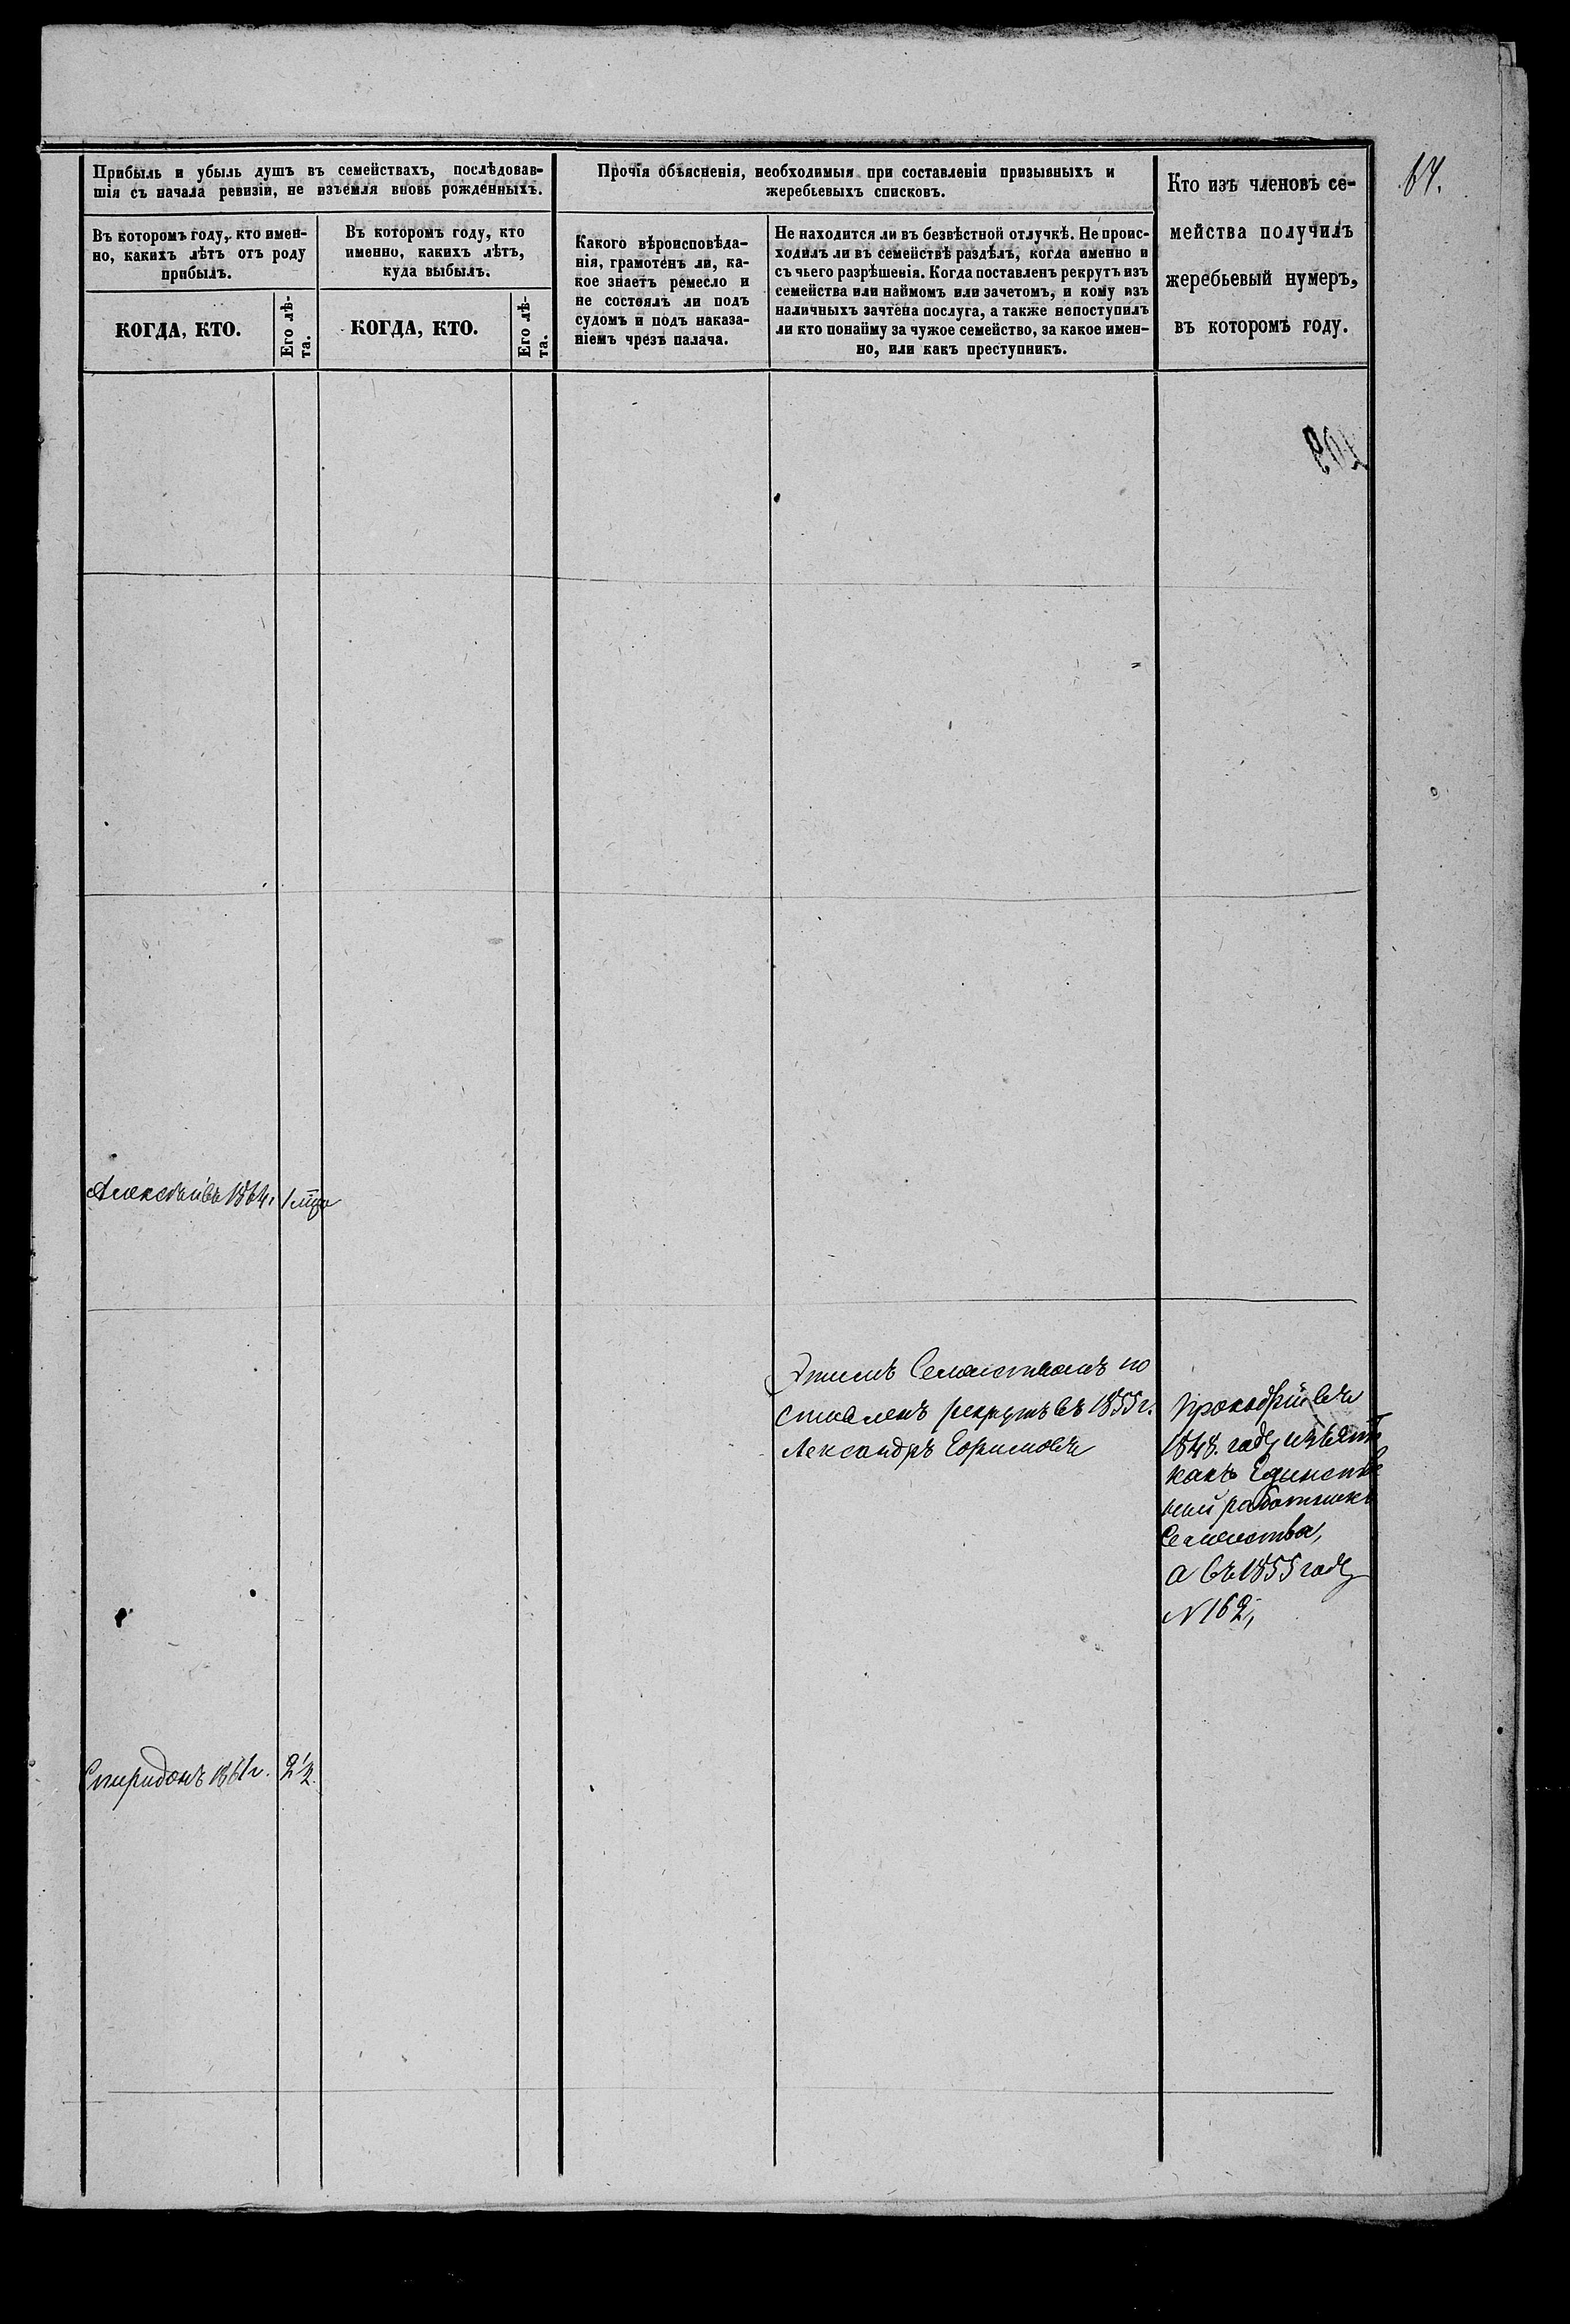 64.
Прибыль и убыль душъ въ семействахъ, послѣдовав-
шія съ начала ревизіи, не изъемля вновь рожденныхъ.
Въ которомъ году, кто имен-
но, какихъ лѣтъ отъ роду
прибылъ.
КОГДА, КТО.
Его лѣ-
та.
Въ которомъ году, кто
именно, какихъ лѣтъ,
куда выбылъ.
КОГДА, КТО.
Его лѣ-
та.
Прочія объясненія, необходимыя при составленіи призывныхъ и
жеребьевыхъ списковъ.
Какого вѣроисповѣда-
нія, грамотенъ ли, ка-
кое знаетъ ремесло и
не состоялъ ли подъ
судомъ и подъ наказа-
ніемъ чрезъ палача.
Не находится ли въ безвѣстной отлучкѣ. Не проис-
ходилъ ли въ семействѣ раздѣлъ, когда именно и
съ чьего разрѣшенія. Когда поставленъ рекрутъ изъ
семейства или наймомъ или зачетомъ, и кому изъ
наличныхъ зачтена послуга, а также непоступилъ
ли кто понайму за чужое семейство, за какое имен-
но, или какъ преступникъ.
Кто изъ членовъ се-
мейства получилъ
жеребьевый нумеръ,
въ которомъ году.
Алексѣй въ 1864.
Этимъ Семействомъ по
ставленъ рекрутъ въ 1855 г.
Александръ Ефимовъ
Прокофій въ
1848. году изъятъ
какъ Единств
ный работникъ
Семейства,
а въ 1855 году
N 162,
Спиридонъ 1861 г.
2 1/2.